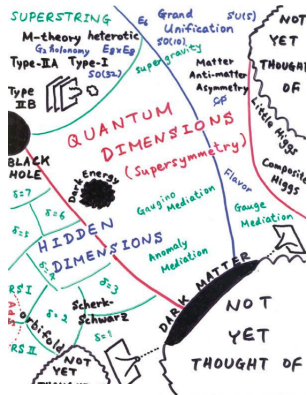 SUPERSTRING
M-theory heterotic
G₂ holonomy E₈×E₈
Type-IIA Type-I
SO(32)
Type
IIB
E₆ Grand
Unification
SU(5)
SO(10)
supergravity
Matter
Anti-matter
Asymmetry
CP
NOT
YET
THOUGHT OF
Little Higgs
Composite
Higgs
QUANTUM
DIMENSIONS
(Supersymmetry)
BLACK
HOLE
Dark Energy
Flavor
Gaugino
Mediation
Gauge
Mediation
Anomaly
Mediation
HIDDEN
DIMENSIONS
δ=7
δ=6
δ=5
δ=4
δ=3
δ=2
δ=1
RS I
AdS
RS II
orbifold
Scherk-
Schwarz
DARK MATTER
NOT
YET
THOUGHT OF
NOT
YET
THOUGHT OF